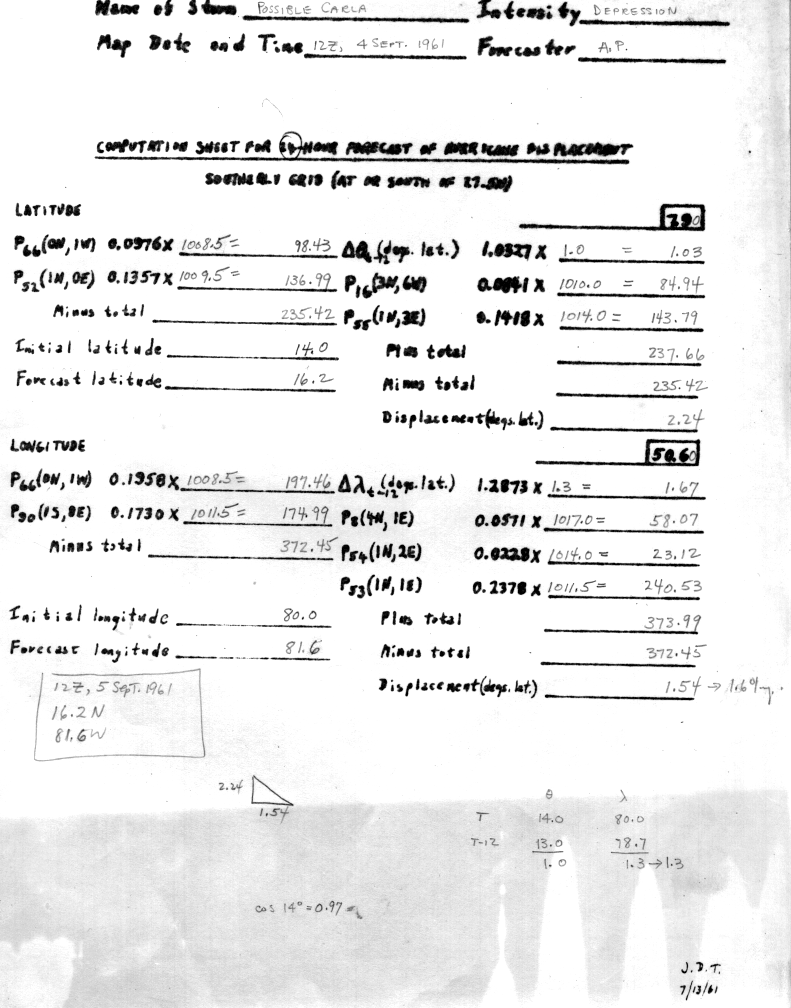 Name of Storm POSSIBLE CARLA Intensity DEPRESSION
Map Date and Time 12Z, 4 SEPT. 1961 Forecaster A.P.
COMPUTATION SHEET FOR 24 HOUR FORECAST OF HURRICANE DISPLACEMENT
SOUTHERLY GRID (AT OR SOUTH OF 27.5N)
LATITUDE
7.90
P66(0N, 1W) 0.0976 X 1008.5 = 98.43 Δθt-12 (deg. lat.) 1.0327 X 1.0 = 1.03
P52(1N, 0E) 0.1357 X 1009.5 = 136.99 P16(3N, 6W) 0.0841 X 1010.0 = 84.94
Minus total 235.42 P55(1N, 3E) 0.1418 X 1014.0 = 143.79
Initial latitude 14.0 Plus total 237.66
Forecast latitude 16.2 Minus total 235.42
Displacement (degs. lat.) 2.24
LONGITUDE
50.60
P66(0N, 1W) 0.1958 X 1008.5 = 197.46 Δλt-12 (deg. lat.) 1.2873 X 1.3 = 1.67
P90(1S, 8E) 0.1730 X 1011.5 = 174.99 P8(4N, 1E) 0.0571 X 1017.0 = 58.07
Minus total 372.45 P54(1N, 2E) 0.0228 X 1014.0 = 23.12
P53(1N, 1E) 0.2378 X 1011.5 = 240.53
Initial longitude 80.0 Plus total 373.99
Forecast longitude 81.6 Minus total 372.45
12Z, 5 SEPT. 1961 Displacement (degs. lat.) 1.54 → 1.6
16.2N
81.6W
2.24
1.54
θ λ
T 14.0 80.0
T-12 13.0 78.7
1.0 1.3 → 1.3
cos 14° = 0.97 =
J.D.T.
7/13/61